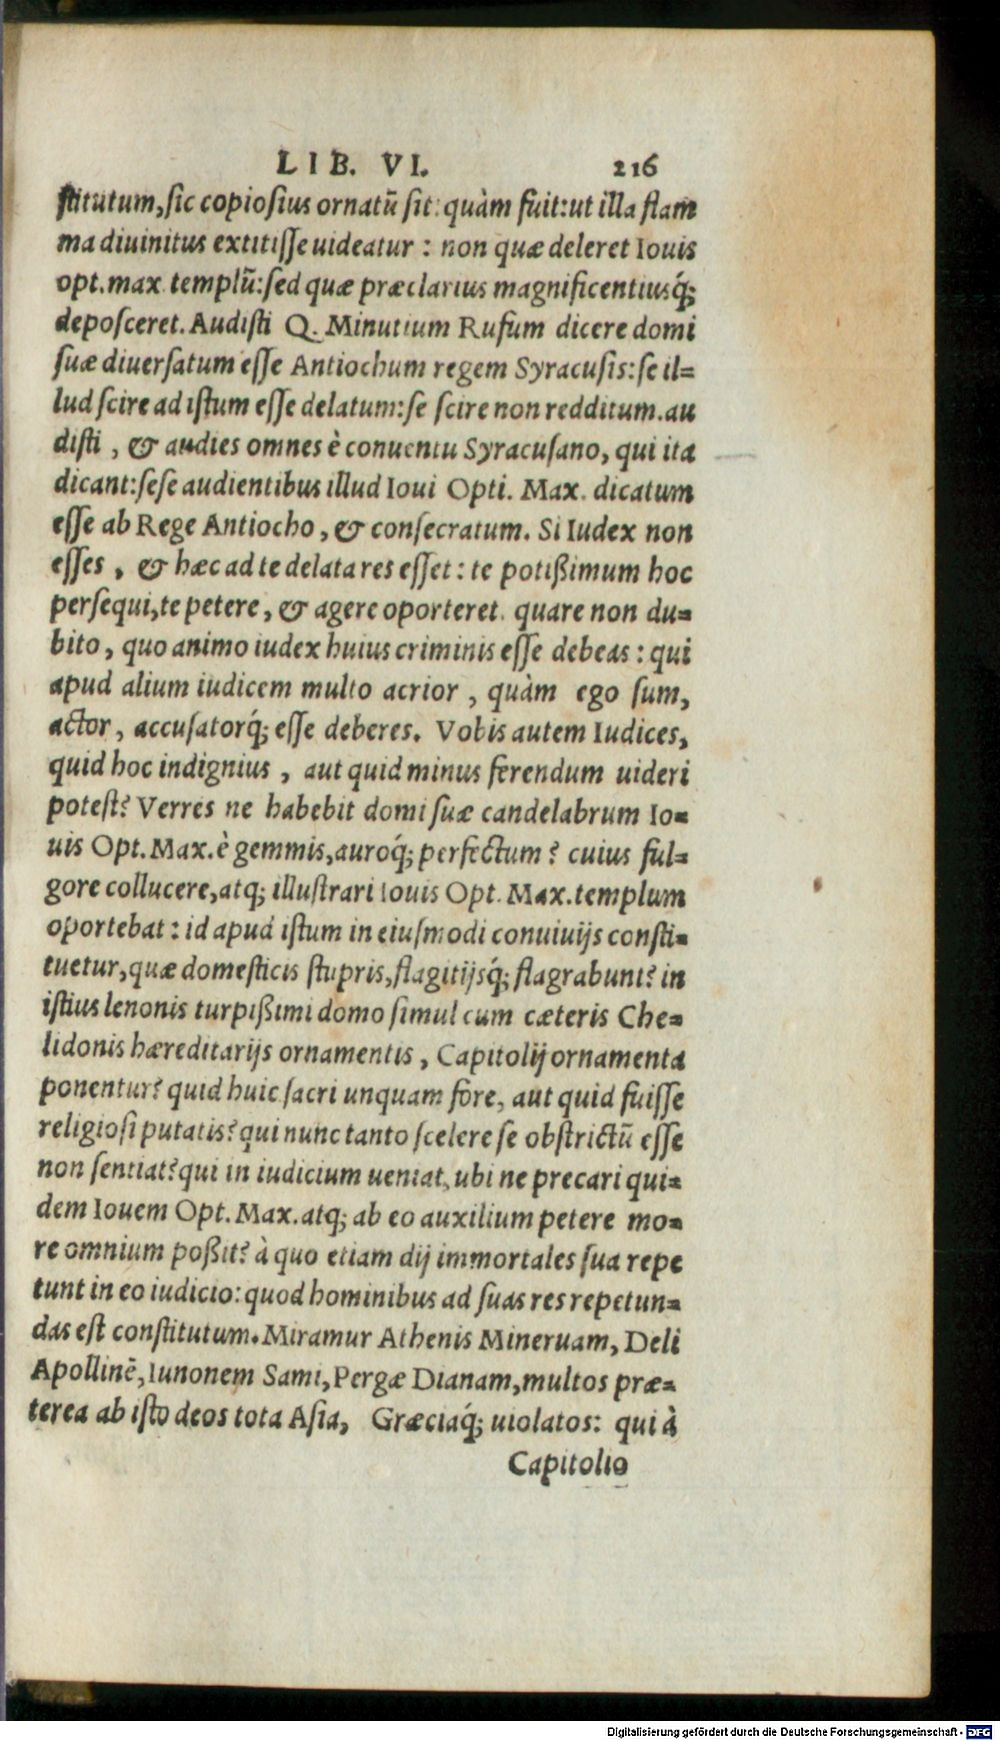 LIB. VI. 216
stitutum, sic copiosius ornatũ sit: quàm fuit: ut illa flam
ma diuinitus extitisse uideatur : non quæ deleret Iouis
opt. max. templũ: sed quæ præclarius magnificentiusq́;
deposceret. Audisti Q. Minutium Rufum dicere domi
suæ diuersatum esse Antiochum regem Syracusis: se il=
lud scire ad istum esse delatum: se scire non redditum. au
disti , & audies omnes è conuentu Syracusano, qui ita
dicant: sese audientibus illud Ioui Opti. Max. dicatum
esse ab Rege Antiocho, & consecratum. Si Iudex non
esses , & hæc ad te delata res esset : te potißimum hoc
persequi, te petere, & agere oporteret. quare non du=
bito, quo animo iudex huius criminis esse debeas : qui
apud alium iudicem multo acrior , quàm ego sum,
actor, accusatorq́; esse deberes. Vobis autem Iudices,
quid hoc indignius , aut quid minus ferendum uideri
potest? Verres ne habebit domi suæ candelabrum Io=
uis Opt. Max. è gemmis, auroq́; perfectum ? cuius ful=
gore collucere, atq; illustrari Iouis Opt. Max. templum
oportebat : id apud istum in eiusmodi conuiuijs consti=
tuetur, quæ domesticis stupris, flagitijsq́; flagrabunt? in
istius lenonis turpißimi domo simul cum cæteris Che=
lidonis hæreditarijs ornamentis , Capitolij ornamenta
ponentur? quid huic sacri unquam fore, aut quid fuisse
religiosi putatis? qui nunc tanto scelere se obstrictũ esse
non sentiat? qui in iudicium ueniat, ubi ne precari qui=
dem Iouem Opt. Max. atq; ab eo auxilium petere mo=
re omnium poßit? à quo etiam dij immortales sua repe
tunt in eo iudicio: quod hominibus ad suas res repetun=
das est constitutum. Miramur Athenis Mineruam, Deli
Apollinẽ, Iunonem Sami, Pergæ Dianam, multos præ=
terea ab isto deos tota Asia, Græciaq́; uiolatos: qui à
Capitolio
Digitalisierung gefördert durch die Deutsche Forschungsgemeinschaft - DFG